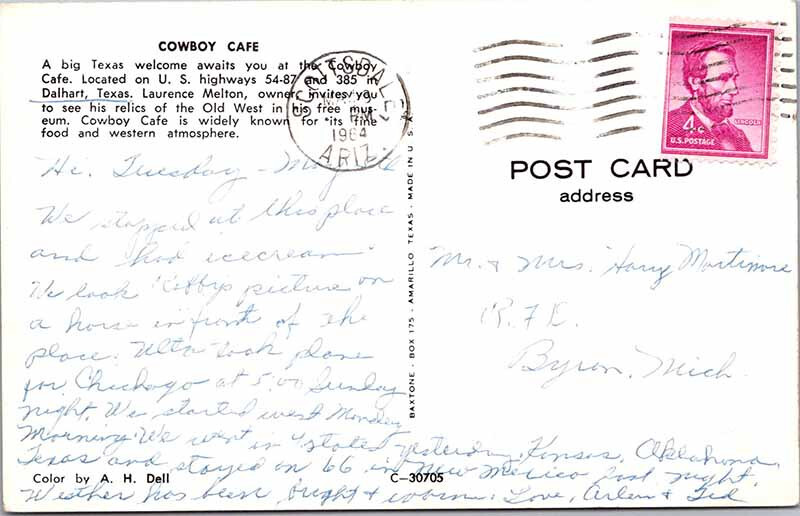 COWBOY CAFE
A big Texas welcome awaits you at the Cowboy
Cafe. Located on U. S. highways 54-87 and 385 in
Dalhart, Texas. Laurence Melton, owner, invites you
to see his relics of the Old West in his free mus-
eum. Cowboy Cafe is widely known for its fine
food and western atmosphere.
SCOTTSDALE
PM
1964
ARIZ.
Hi. Tuesday - May
We stopped at this place
and had icecream
We took picture on
a horse in front of the
place. Ulta took plane
for Chickago at 5:00 Sunday
night. We started west Monday
Morning. We went in 4 states yesterday, Kansas, Oklahoma,
Texas and stayed on 66 in New Mexico last night.
Weather has been bright & warm. Love, Arlen & Ted
Color by A. H. Dell
C-30705
BAXTONE - BOX 175 - AMARILLO TEXAS - MADE IN U. S. A.
4¢
LINCOLN
U.S. POSTAGE
POST CARD
address
Mr. & Mrs. Harry Mortimore
Byron, Mich.